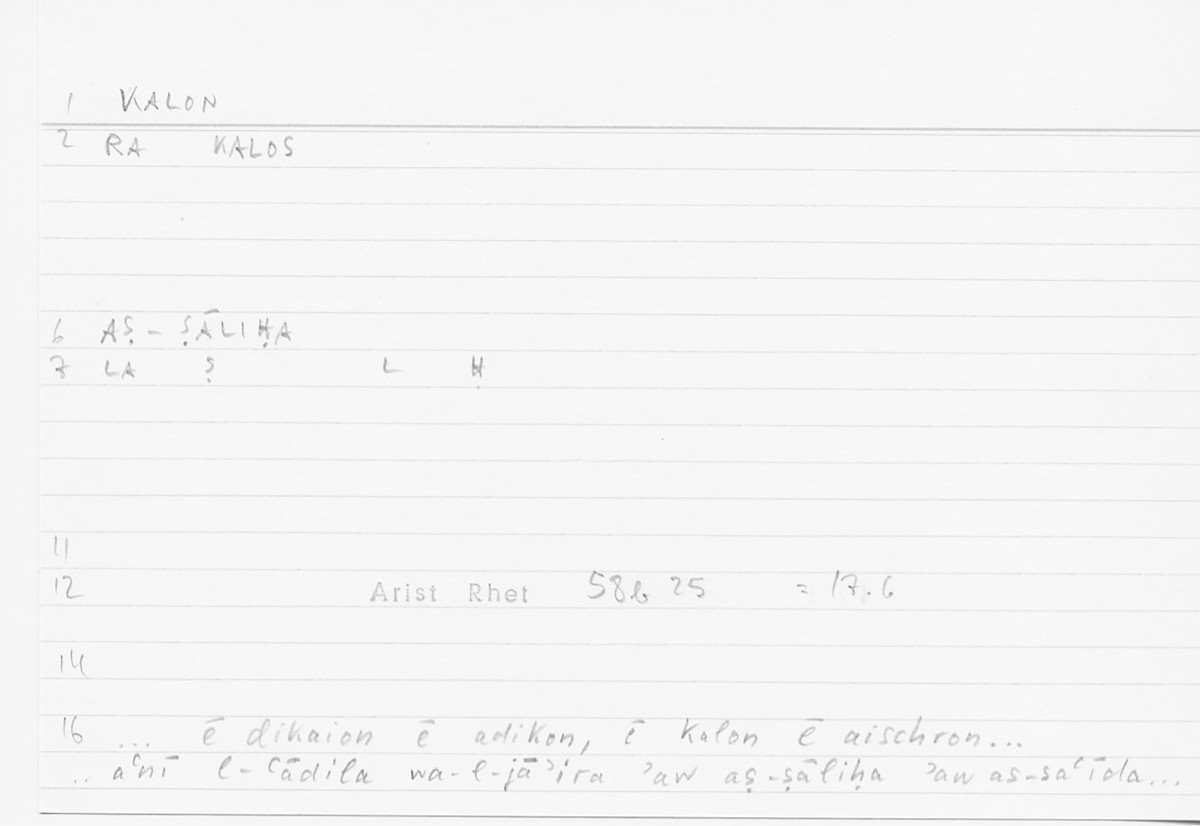 1 KALON
2 RA KALOS
6 AṢ-ṢĀLIḤA
7 LA Ṣ L Ḥ
11
12 Arist Rhet 58b 25 = 17.6
14
16 ... ē dikaion ē adikon, ē kalon ē aischron...
.. aʿnī l-ʿādila wa-l-jāʾira ʾaw aṣ-ṣāliḥa ʾaw as-saʿīda...